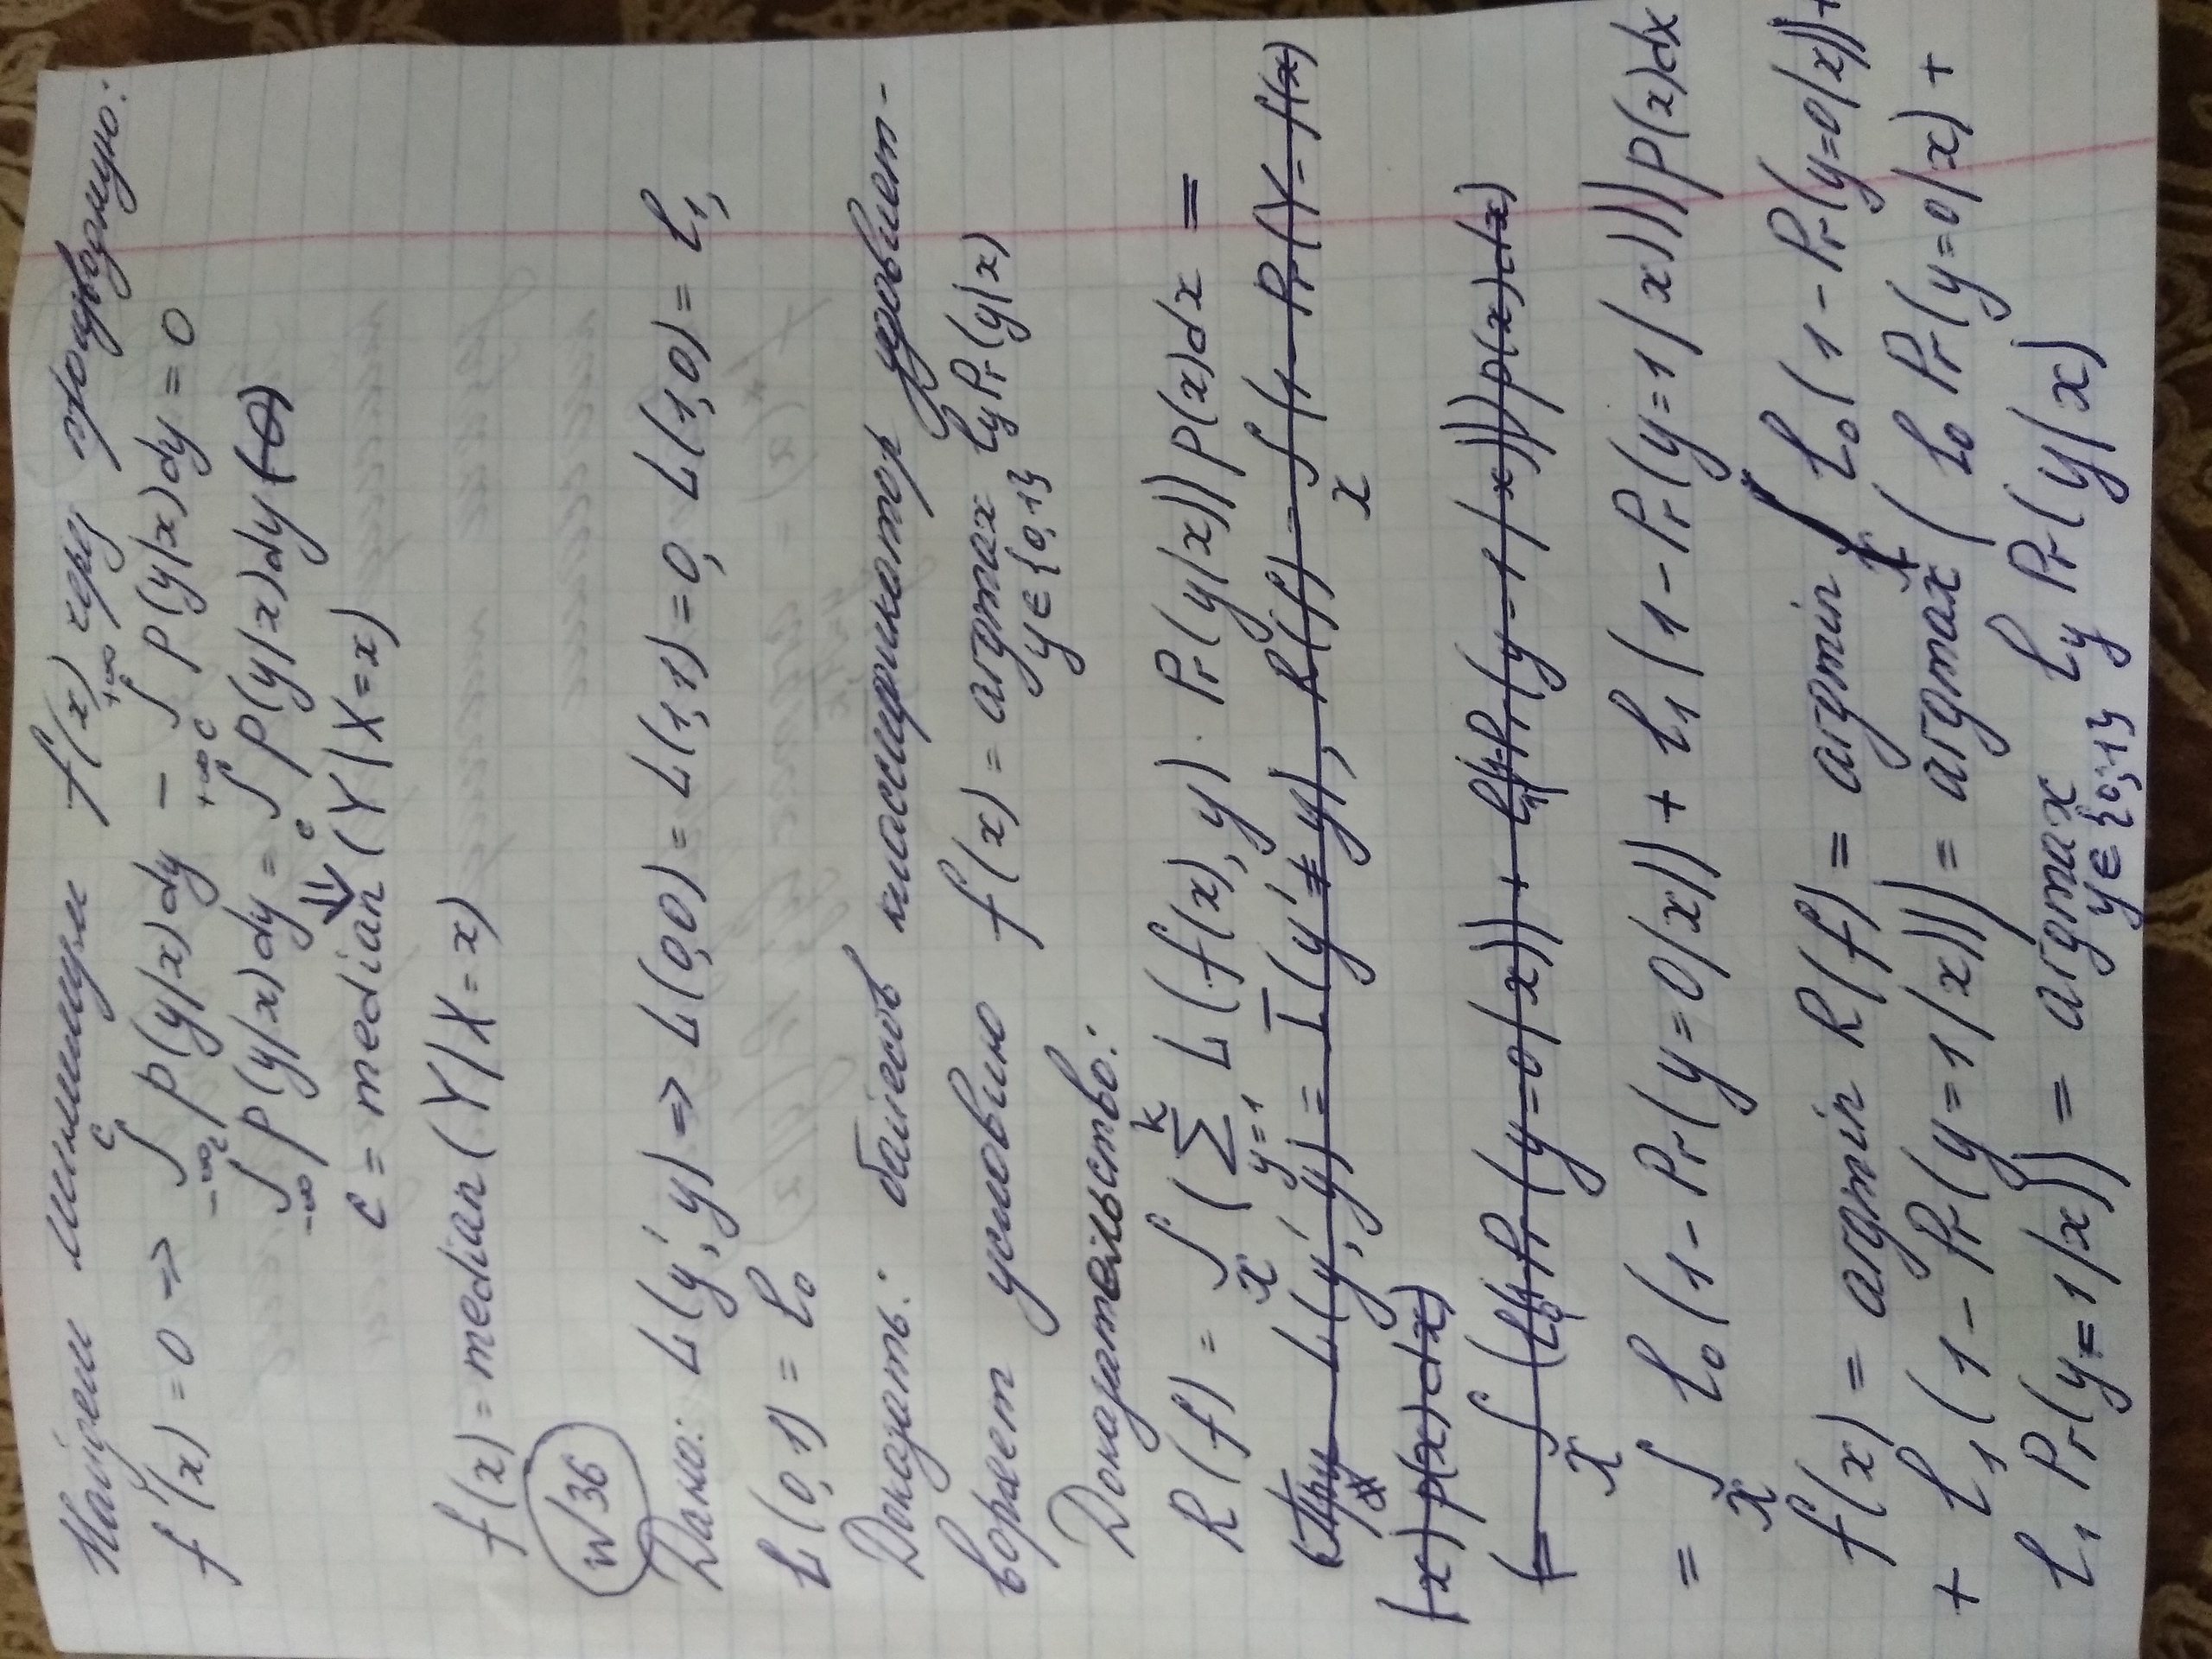 Найдем минимум f(x) через производную:
f'(x) = 0 => ∫_{-∞}^{c} p(y|x)dy - ∫_{c}^{+∞} p(y|x)dy = 0
∫_{-∞}^{c} p(y|x)dy = ∫_{c}^{+∞} p(y|x)dy (0)
⇓
c = median (Y|X=x)
f(x) = median (Y|X=x)
N36
Дано: L(y', y) => L(0,0) = L(1,1) = 0, L(1,0) = l₁,
L(0,1) = l₀
Доказать: байесов классификатор удовлет-
воряет условию f(x) = argmax_{y∈{0,1}} l_y Pr(y|x)
Доказательство:
R(f) = ∫_X (∑_{y=1}^{k} L(f(x), y) · Pr(y|x)) p(x)dx =
(При L(y', y) = I(y' ≠ y), R(f) = ∫_X (1 - Pr(Y = f(x)
|x) p(x) dx)
(= ∫_X (l₀(1-Pr(y=0|x)) + l₁(1-Pr(y=1|x))) p(x)dx)
= ∫_X l₀(1-Pr(y=0|x)) + l₁(1-Pr(y=1|x))) p(x)dx
f(x) = argmin R(f) = argmin ∫_X l₀(1-Pr(y=0|x)) +
+ l₁(1-Pr(y=1|x))) = argmax ( l₀ Pr(y=0|x) +
l₁ Pr(y=1|x)) = argmax_{y∈{0;1}} l_y Pr(y|x)